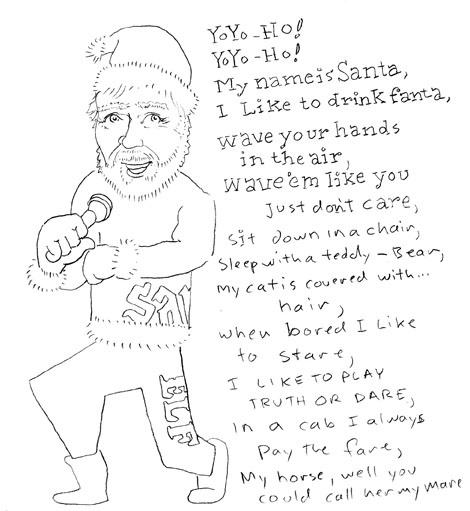 YoYo-Ho!
YoYo-Ho!
My name is Santa,
I Like to drink fanta,
Wave your hands
in the air,
Wave'em like you
just don't care,
Sit down in a chair,
Sleep with a teddy-Bear,
My cat is covered with...
hair,
When bored I Like
to stare,
I LIKE TO PLAY
TRUTH OR DARE,
In a cab I always
Pay the fare,
My horse, well you
could call her my mare
ELF